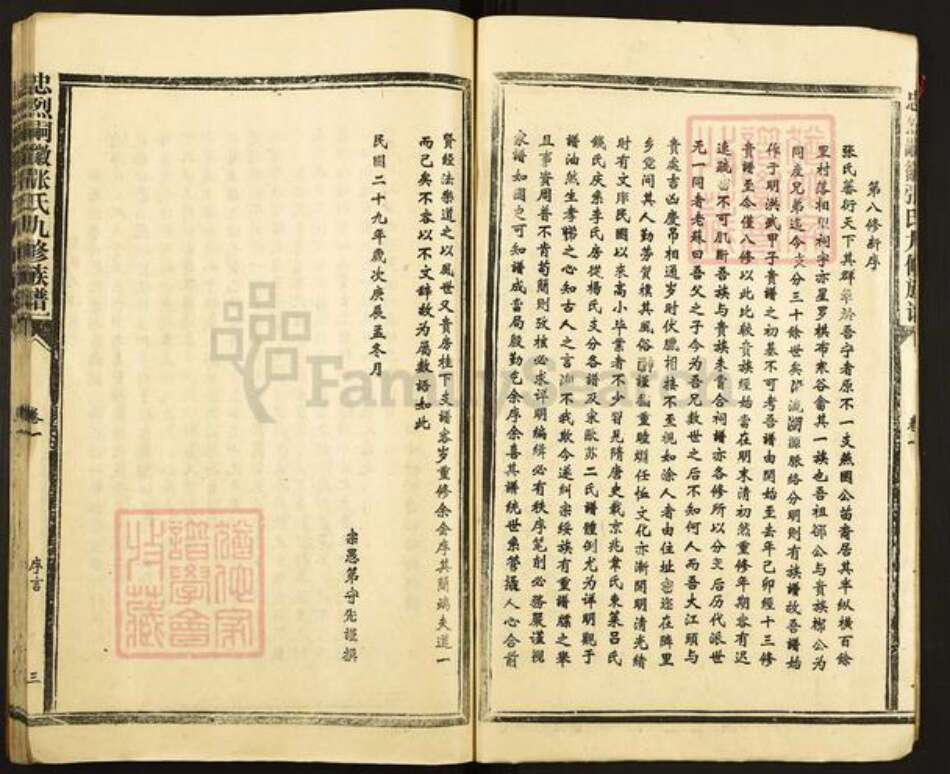 第八修新序
張氏蕃衍天下其群萃於吾宁者原不一支燕國公苗裔居其半纵橫百餘
里村落相望祠宇亦星罗棋布寒谷畲其一族也吾祖鄒公与貴族梆公为
同産兄弟迄今支分三十餘世矣泝流溯源脈絡分明則有族譜故吾譜始
作于明洪武甲子貴譜之初基不可考吾譜由開始至去年己卯經十三修
貴譜至今僅八修以此比較貴族經始當在明末清初然重修年期容有迟
速疏密不可肌断吾族与貴族未嘗合祠譜亦各修所以分支后历代派世
无一同者老蘇曰吾父之子今为吾兄数世之后不知何人而吾大江頭与
貴處吉凶慶吊相通岁时伏臘相接不至視如涂人者由住址密迩在陣里
乡党间其人勤劳質樸其風俗醇謹敦重睦婣任恤文化亦漸開明清光緒
时有文庠民國以來高小毕業者不少習見隋唐史載京兆韋氏東萊吕氏
錢氏庆系李氏房從楊氏支分各譜及宋歐苏二氏譜體例尤为详明觀于
譜油然生孝悌之心知古人之言洵不我欺今遂糾宗綏族有重譜牒之舉
且事资周普不肯苟簡則攷核必求详明編緝必有秩序笔削必務嚴谨視
家譜如國史可知譜成當局殷勤乞余序余喜其譜統世系管攝人心合前
賢經法樂道之以風世又貴房桂下支譜客岁重修余会序其簡端夫道一
而已矣不容以不文辞故为屬数語如此
民國二十九年歲次庚辰孟冬月
宗愚第守先謹撰
忠烈嗣徽张氏九修族譜
卷一
序言
三
FamilySearch